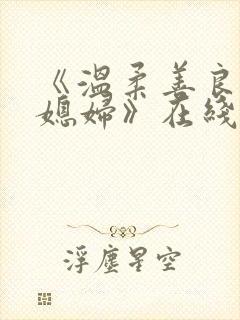 《溫柔善良
媳婦》在綫
浮塵星空